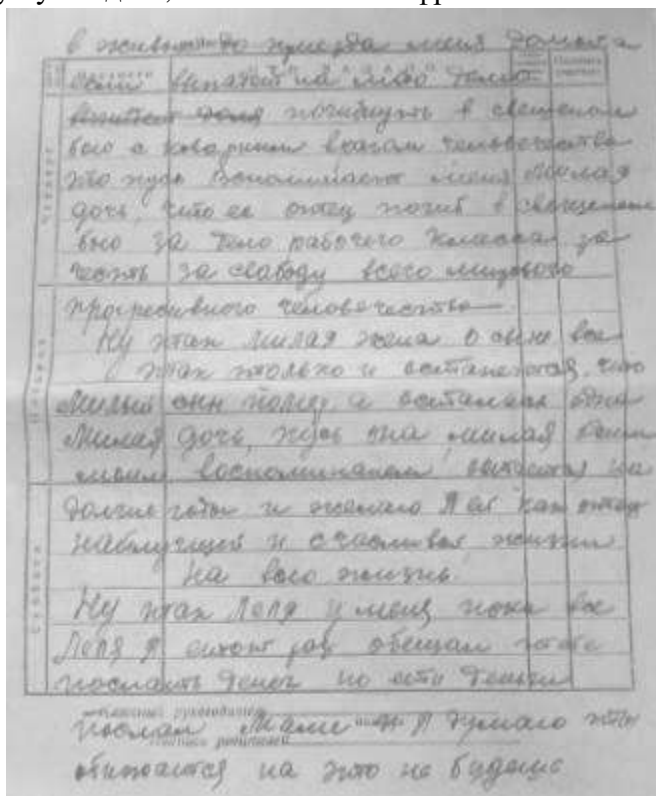 в живых до приезда меня домой а
если выпадет на мою долю
погибнуть в свещеном
бою с коварным врагом человечества
то пусь вспоминает меня милая
дочь, что ее отец погиб в свещеном
бою за дело рабочего класса за
честь за свабоду всего мирового
прогресивного человечества
Ну так милая жена о сыне все
так только и останется, что
Милый сын помер а осталась одна
Милая дочь, пусь она милая
моим воспоминанем на
долгие годы и желаю я ей как отец
наилучшей и счасливой жизни
на всю жизнь
Ну так Леля у меня пока все
Леля я один раз обещал тебе
послать денег но эти деньги
классный руководитель
послал Маме и я думаю ты
родителей
обижаться на это не будешь